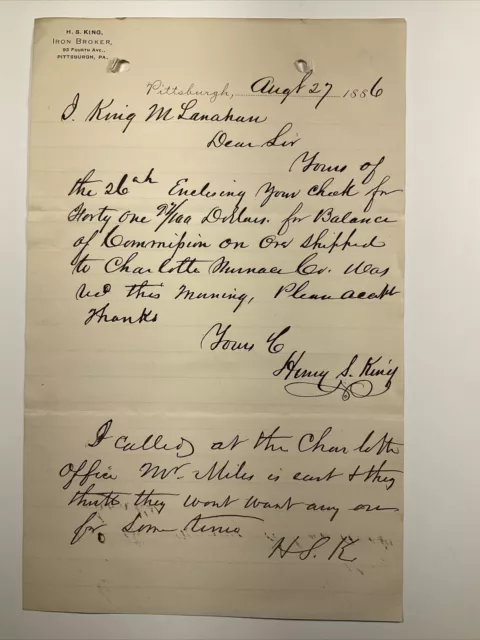 H. S. KING,
IRON BROKER,
95 FOURTH AVE.,
PITTSBURGH, PA.
Pittsburgh, Augt 27 1886
J. King McLanahan
Dear Sir
Yours of
the 26th Enclosing Your Check for
Forty one 97/100 Dollars. for Balance
of Commission on Ore shipped
to Charlotte Furnace Co. Was
recd this Morning, Please accept
Thanks
Yours &c
Henry S. King
I called at the Charlotte
Office Mr. Miles is east & they
think they wont want any ore
for some time
H S. K